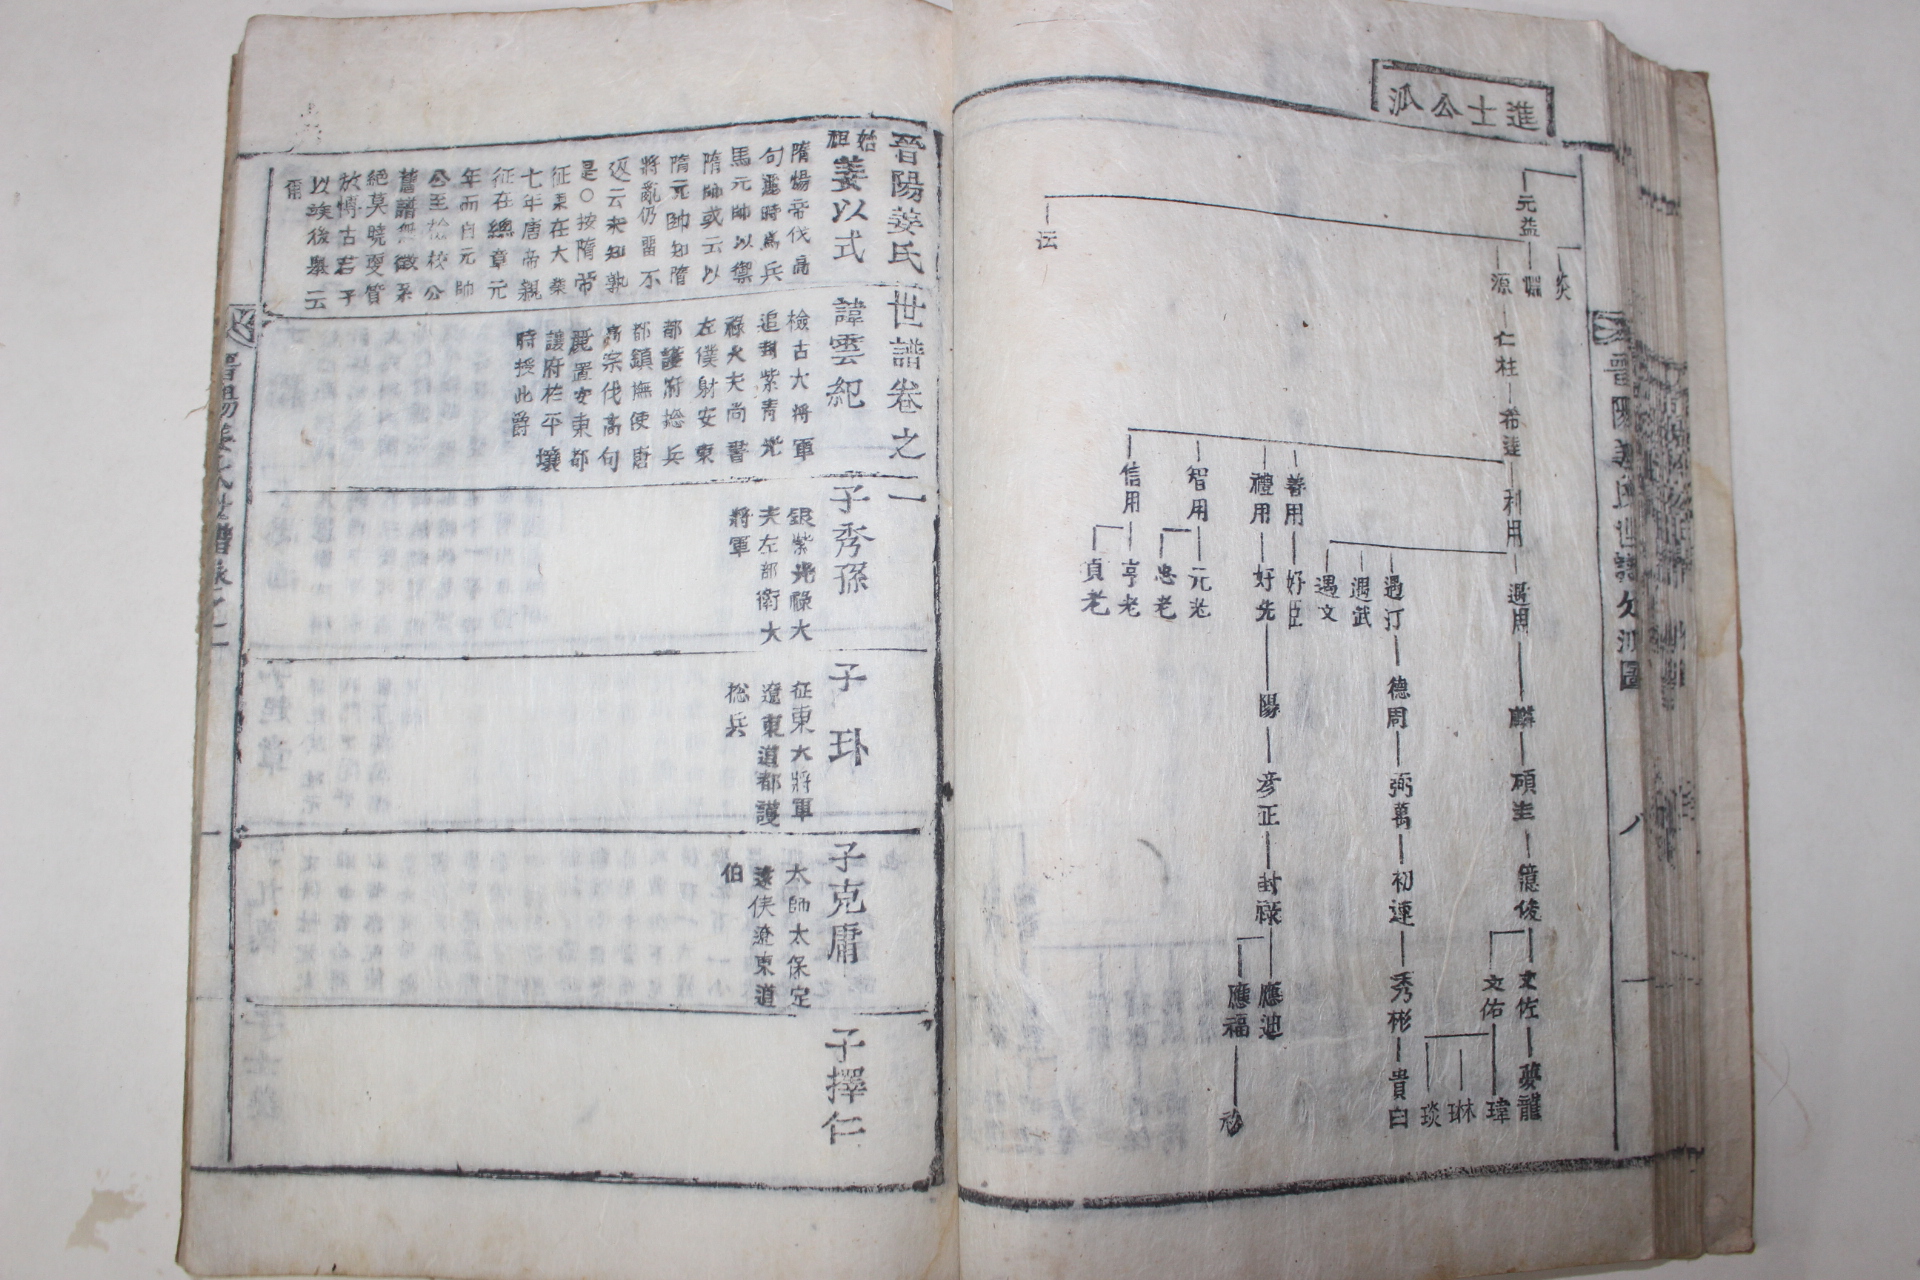 進士公派
元益
炎
淵
源
沄
仁柱
希逵
利用
善用
禮用
智用
信用
遇用
遇汀
遇武
遇文
好臣
好先
元老
忠老
亨老
貞老
麟
碩圭
億俊
文佐
文佑
夢龍
瑋
琳
琰
德周
弼萬
初速
秀彬
貴白
陽
彦正
封祿
應迪
應福
晉陽姜氏世譜分派圖
八
晉陽姜氏世譜卷之二
始祖姜以式
隋煬帝伐高
句麗時爲兵
馬元帥以禦
隋師或云以
隋元帥知隋
將亂仍留不
返云未知孰
是○按隋帝
征東在大業
七年唐帝親
征在總章元
年而自元帥
公至檢校公
舊譜無徵系
絕莫曉更質
於博古君子
以竢後擧云
爾
諱雲紀
檢古大將軍
追封紫青光
祿大夫尚書
左僕射安東
都護府捴兵
都鎮撫使唐
高宗伐高句
麗置安東都
護府於平壤
時授此爵
子秀孫
銀紫光祿大
夫左部衛大
將軍
子卦
征東大將軍
遼東道都護
捴兵
子克庸
太師太保定
遠侯遼東道
伯
子擇仁
晉陽姜氏世譜卷之二